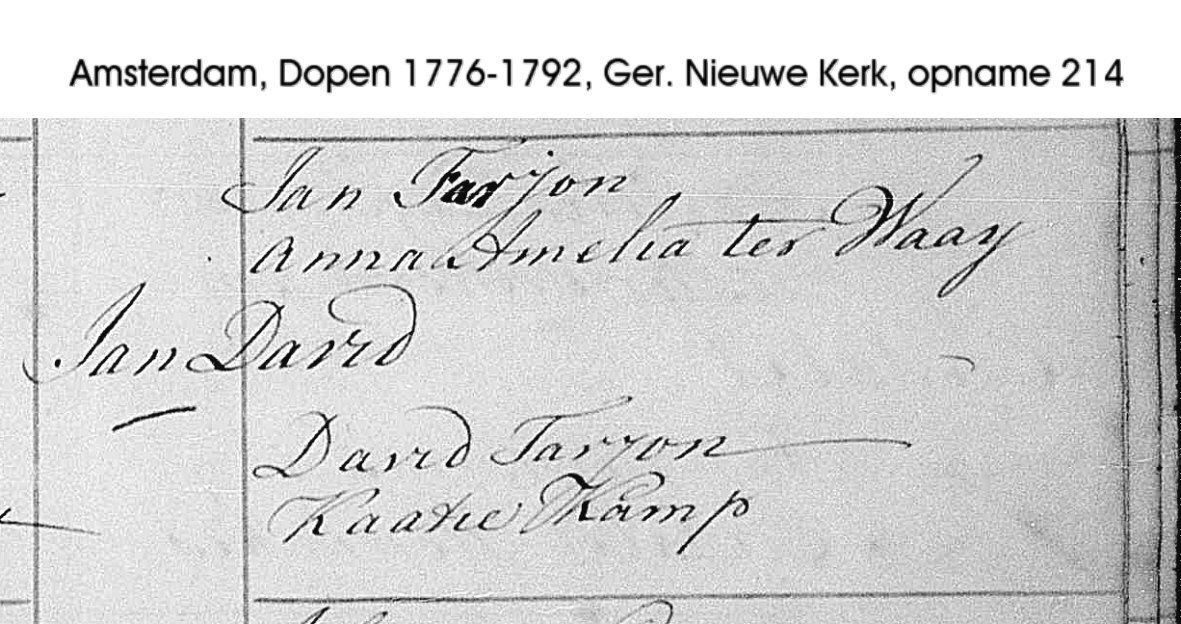 Amsterdam, Dopen 1776-1792, Ger. Nieuwe Kerk, opname 214
Jan Farjon
Anna Amelia ter Waay
Jan David
David Faryon
Kaatie Kamp